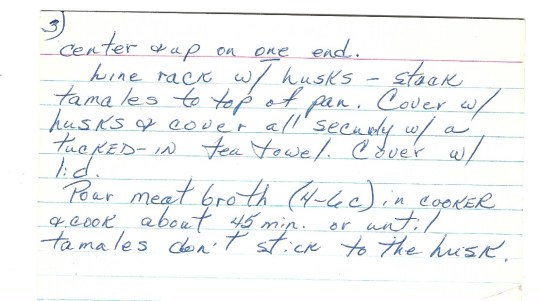 3)
center & up on one end.
Line rack w/ husks - stack
tamales to top of pan. Cover w/
husks & cover all securly w/ a
TUCKED-IN tea towel. Cover w/
lid.
Pour meat broth (4-6c) in COOKER
& COOK about 45 min. or until
tamales don't stick to the husk.